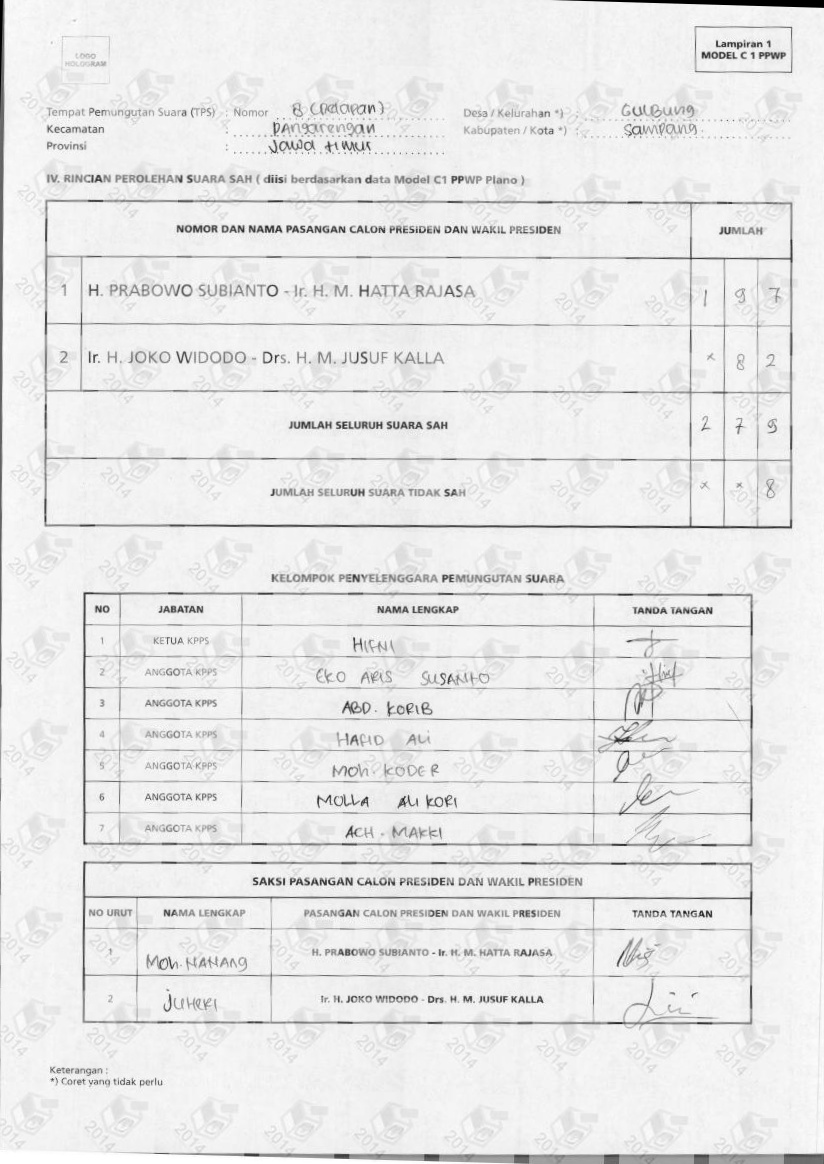 LOGO
HOLOGRAM
Lampiran 1
MODEL C 1 PPWP
Tempat Pemungutan Suara (TPS) : Nomor 8 (Delapan) Desa / Kelurahan *) : Gulbung
Kecamatan : Pangarengan Kabupaten / Kota *) : Sampang.
Provinsi : Jawa timur
IV. RINCIAN PEROLEHAN SUARA SAH ( diisi berdasarkan data Model C1 PPWP Plano )
NOMOR DAN NAMA PASANGAN CALON PRESIDEN DAN WAKIL PRESIDEN JUMLAH
1 H. PRABOWO SUBIANTO - Ir. H. M. HATTA RAJASA 1 9 7
2 Ir. H. JOKO WIDODO - Drs. H. M. JUSUF KALLA x 8 2
JUMLAH SELURUH SUARA SAH 2 7 9
JUMLAH SELURUH SUARA TIDAK SAH x x 8
KELOMPOK PENYELENGGARA PEMUNGUTAN SUARA
NO JABATAN NAMA LENGKAP TANDA TANGAN
1 KETUA KPPS HIFNI
2 ANGGOTA KPPS EKO ARIS SUSANTO
3 ANGGOTA KPPS ABD. KORIB
4 ANGGOTA KPPS HAFID ALI
5 ANGGOTA KPPS MOH. KODER
6 ANGGOTA KPPS MOLLA ALI KORI
7 ANGGOTA KPPS ACH. MAKKI
SAKSI PASANGAN CALON PRESIDEN DAN WAKIL PRESIDEN
NO URUT NAMA LENGKAP PASANGAN CALON PRESIDEN DAN WAKIL PRESIDEN TANDA TANGAN
1 MOH. NANANG H. PRABOWO SUBIANTO - Ir. H. M. HATTA RAJASA
2 JUHERI Ir. H. JOKO WIDODO - Drs. H. M. JUSUF KALLA
Keterangan :
*) Coret yang tidak perlu